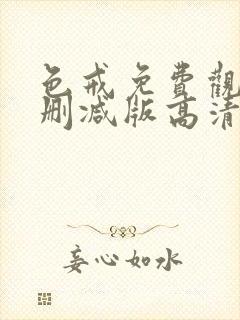 色戒免費觀
删减版高清
妄心如水